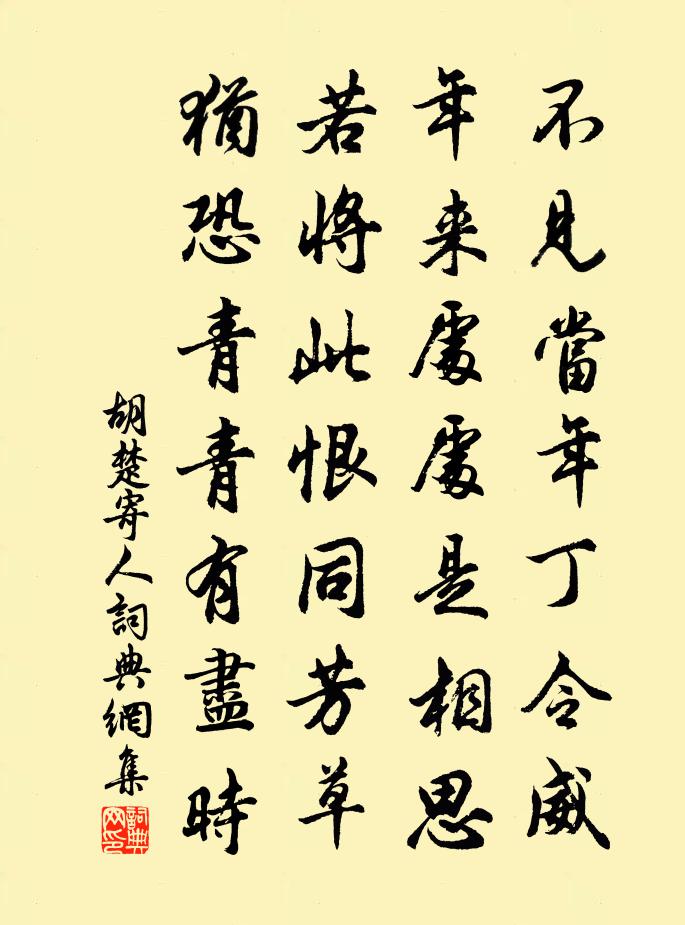 不見當年丁令威
年来處處是相思
若將此恨同芳草
猶恐青青有盡時
胡楚寄人詞典網集
詞典網印